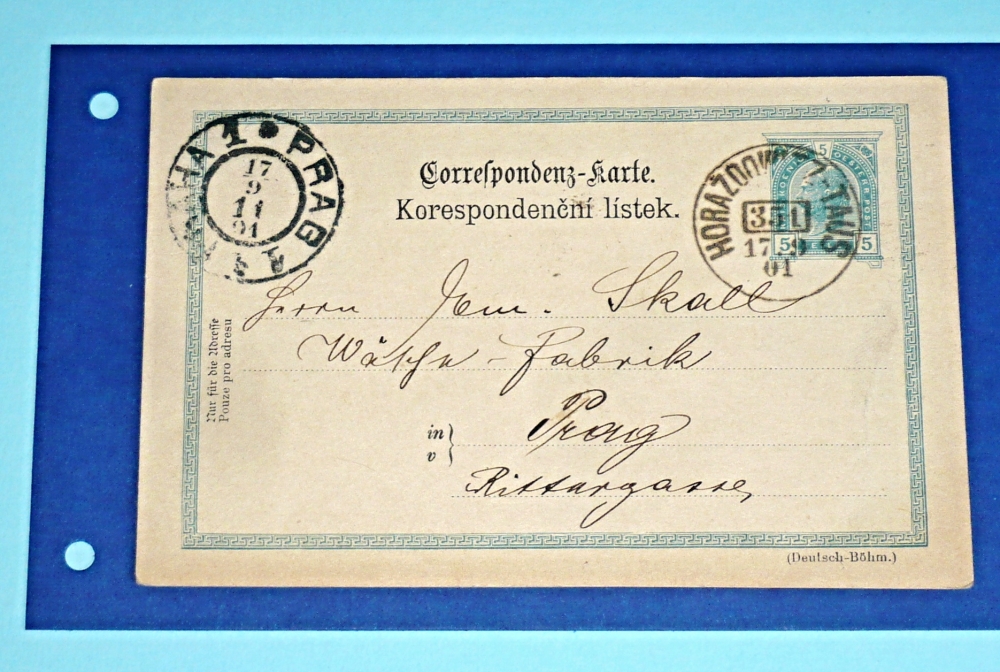 PRAG 1
PRAHA 1
17
9
11
01
Correspondenz-Karte.
Korespondenční lístek.
HORAŽĎOVIC TAUS
351
17 9
01
5
5 5
Herrn Em. Skall
Wäsche-Fabrik
in Prag
v
Rittergasse
Nur für die Adresse
Pouze pro adresu
(Deutsch-Böhm.)